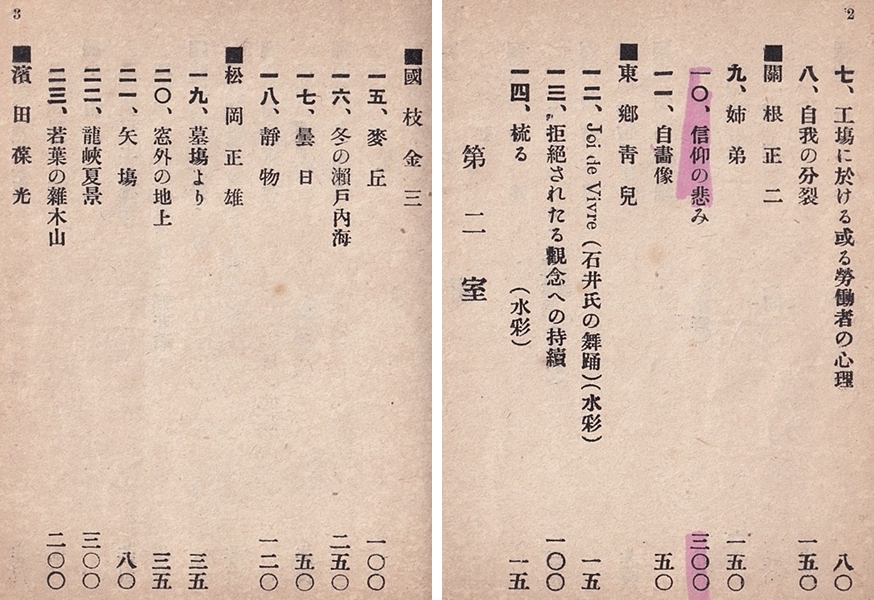 2
七、工場に於ける或る勞働者の心理 八〇
八、自我の分裂 一五〇
■關根正二
九、姉弟 一五〇
一〇、信仰の悲み 三〇〇
一一、自畫像 五〇
■東鄕靑兒
一二、Joi de Vivre(石井氏の舞踊)(水彩) 一五
一三、拒絕されたる觀念への持續 一〇〇
一四、梳る (水彩) 一五
第二室
3
■國枝金三
一五、麥丘 一〇〇
一六、冬の瀨戶內海 二五〇
一七、曇日 五〇
一八、靜物 一二〇
■松岡正雄
一九、墓塲より 三五
二〇、窓外の地上 三五
二一、矢塲 八〇
二二、龍峽夏景 三〇〇
二三、若葉の雜木山 二〇〇
■濱田葆光